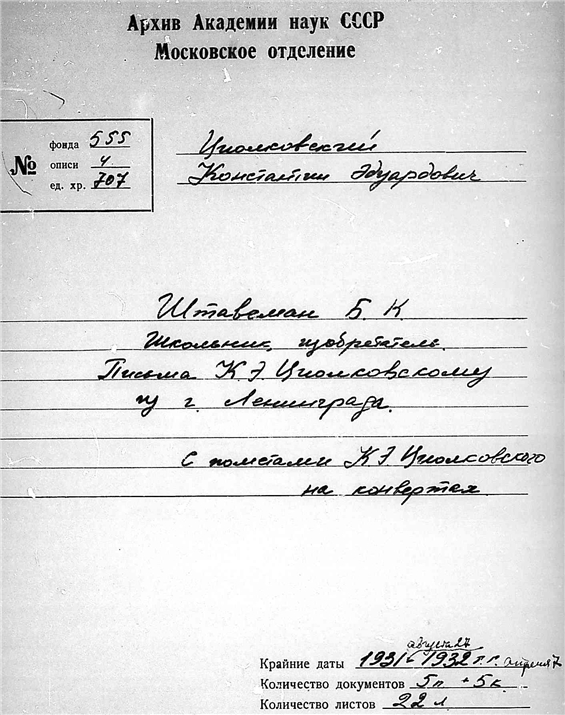 Архив Академии наук СССР
Московское отделение
№
фонда 555
описи 4
ед. хр. 707
Циолковский
Константин Эдуардович
Штавеман Б. К.
Школьник, изобретатель.
Письма К.Э. Циолковскому
из г. Ленинграда.
С пометами К.Э. Циолковского
на конвертах
августа 27
Крайние даты 1931 - 1932 г.г. апреля 7
Количество документов 5п + 5к
Количество листов 22 л.